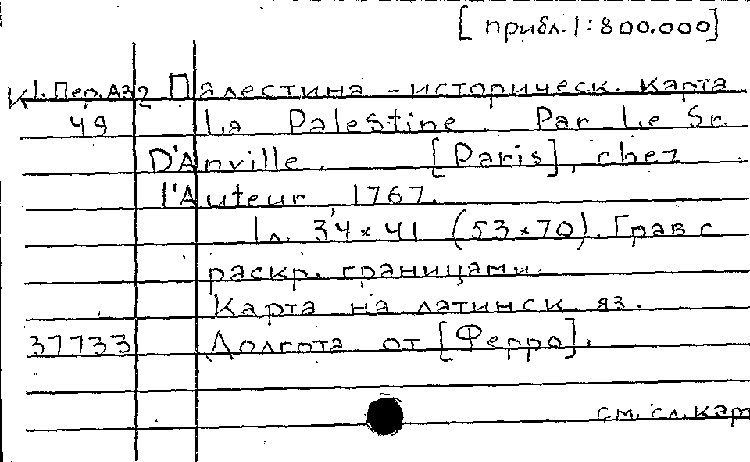 [прибл. 1:800.000]
К 1. Пер. Аз 2 Палестина - историческ. карта
49 La Palestine. Par Le Sr.
D'Anville. [Paris], chez
l'Auteur, 1767.
1 л. 34×41 (53×70). Грав с
раскр. границами.
Карта на латинск яз.
37733 Долгота от [Ферро].
см. сл. кар